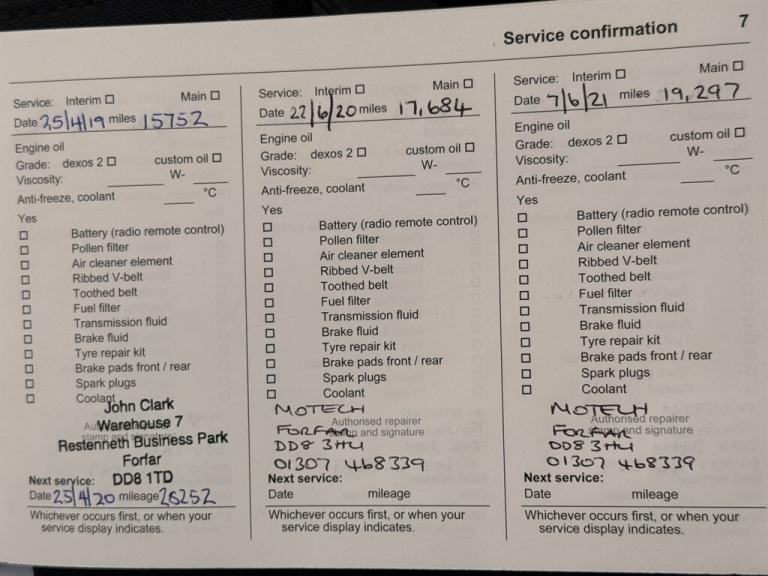 Service confirmation 7
Service: Interim ☐ Main ☐
Date 25/4/19 miles 15752
Engine oil
Grade: dexos 2 ☐ custom oil ☐
Viscosity: ____ W- ____
Anti-freeze, coolant ____ °C
Yes
☐ Battery (radio remote control)
☐ Pollen filter
☐ Air cleaner element
☐ Ribbed V-belt
☐ Toothed belt
☐ Fuel filter
☐ Transmission fluid
☐ Brake fluid
☐ Tyre repair kit
☐ Brake pads front / rear
☐ Spark plugs
☐ Coolant
John Clark
Warehouse 7
Restenneth Business Park
Forfar
DD8 1TD
Next service:
Date 25/4/20 mileage 26252
Whichever occurs first, or when your
service display indicates.
Service: Interim ☐ Main ☐
Date 22/6/20 miles 17,684
Engine oil
Grade: dexos 2 ☐ custom oil ☐
Viscosity: ____ W- ____
Anti-freeze, coolant ____ °C
Yes
☐ Battery (radio remote control)
☐ Pollen filter
☐ Air cleaner element
☐ Ribbed V-belt
☐ Toothed belt
☐ Fuel filter
☐ Transmission fluid
☐ Brake fluid
☐ Tyre repair kit
☐ Brake pads front / rear
☐ Spark plugs
☐ Coolant
MOTECH
Authorised repairer
FORFAR
and signature
DD8 3HU
01307 468339
Next service:
Date mileage
Whichever occurs first, or when your
service display indicates.
Service: Interim ☐ Main ☐
Date 7/6/21 miles 19,297
Engine oil
Grade: dexos 2 ☐ custom oil ☐
Viscosity: ____ W- ____
Anti-freeze, coolant ____ °C
Yes
☐ Battery (radio remote control)
☐ Pollen filter
☐ Air cleaner element
☐ Ribbed V-belt
☐ Toothed belt
☐ Fuel filter
☐ Transmission fluid
☐ Brake fluid
☐ Tyre repair kit
☐ Brake pads front / rear
☐ Spark plugs
☐ Coolant
MOTECH
Authorised repairer
FORFAR
and signature
DD8 3HU
01307 468339
Next service:
Date mileage
Whichever occurs first, or when your
service display indicates.